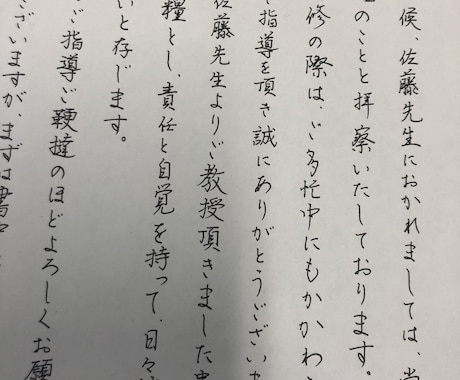 候、佐藤先生におかれましては、
のことと拝察いたしております。
修の際は、ご多忙中にもかかわ
ご指導を頂き誠にありがとうございま
佐藤先生よりご教授頂きました
糧とし、責任と自覚を持って、日々
いと存じます。
ご指導ご鞭撻のほどよろしくお願
ございますが、まずは書中